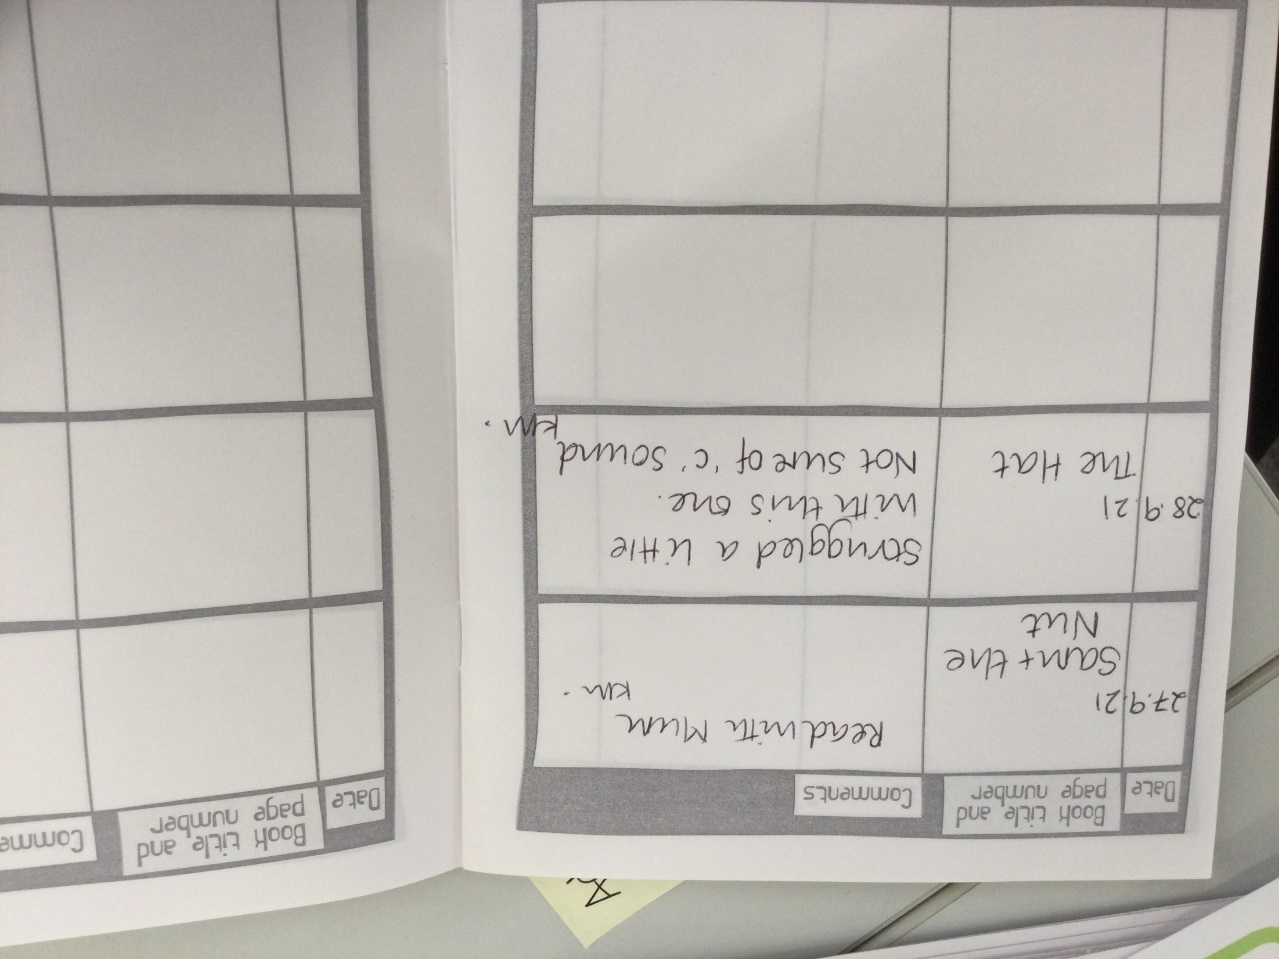 Date
Book title and
page number
Comments
27.9.21
Sam + the
Nut
Read with Mum
KM.
28.9.21
The Hat
Struggled a little
with this one.
Not sure of 'c' sound
KM.
Date
Book title and
page number
Comme